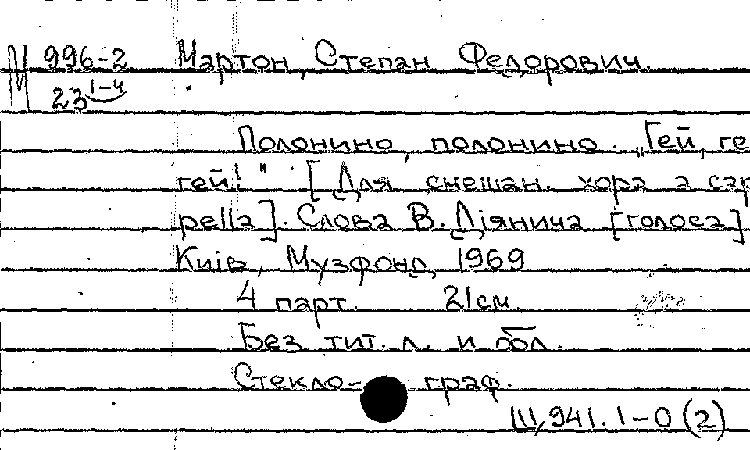 М 996-2 Мартон, Степан Федорович.
23 1-4
Полонино, полонино. „Гей, ге
гей! " [Для смешан. хора a cap
pella]. Слова В. Діянича [голоса]
Київ, Музфонд, 1969
4 парт. 21 см.
Без тит. л. и обл.
Стекло- граф.
Ш,941.1-0 (2)